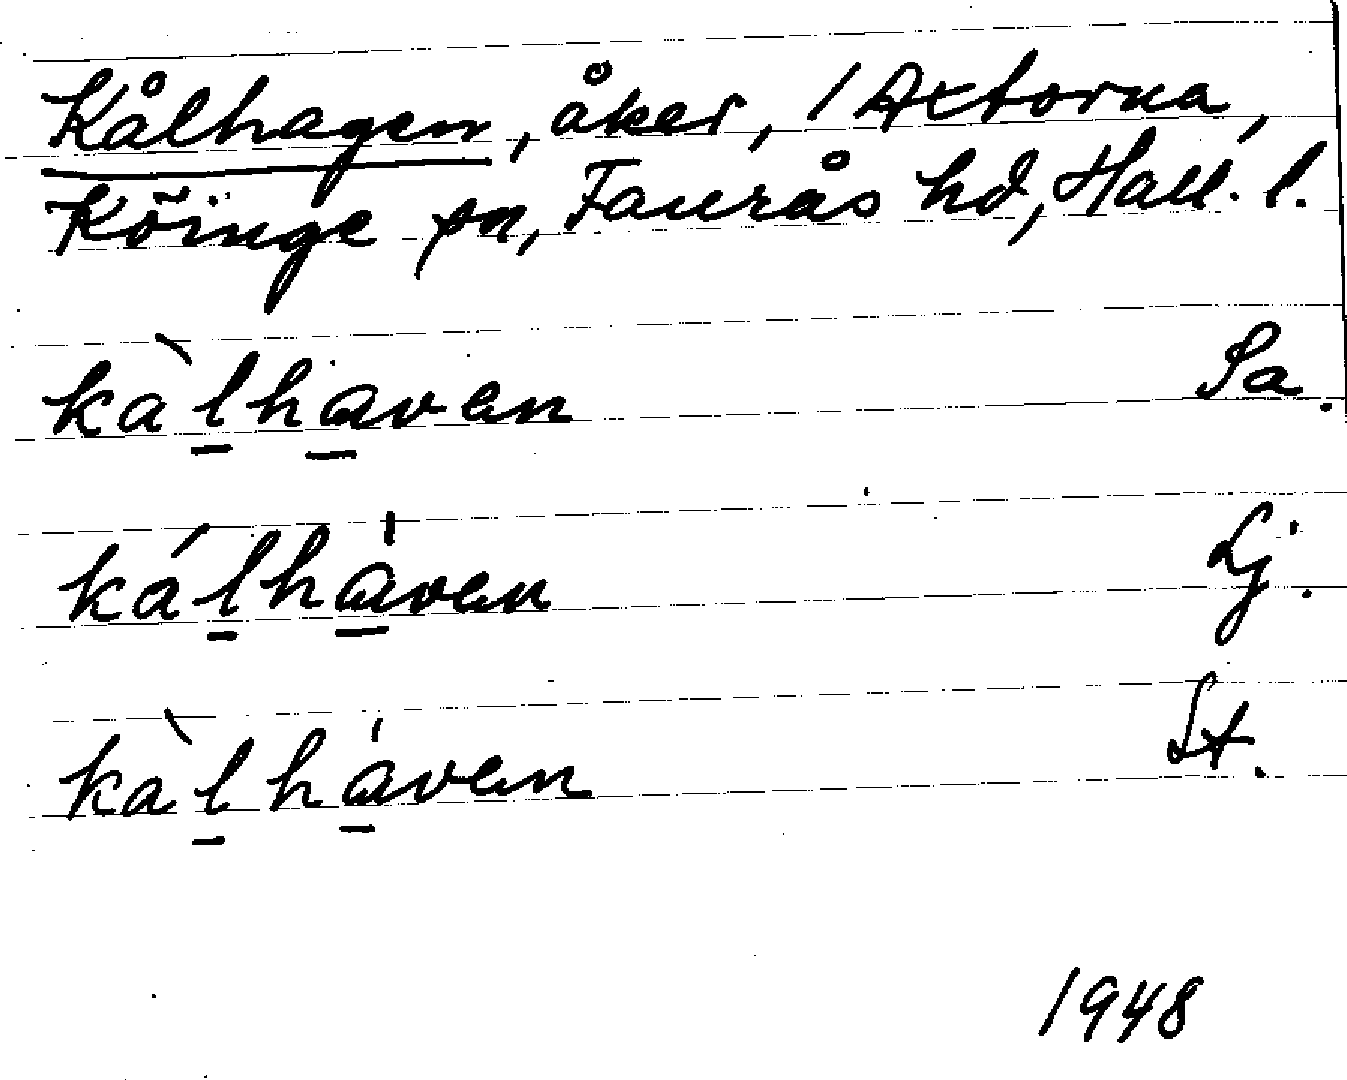 Kålhagen, åker, /Axtorna,
Köinge sn, Faurås hd, Hall. l.
kàlhaven Sa.
kálhàven Lj.
kàlháven St.
1948